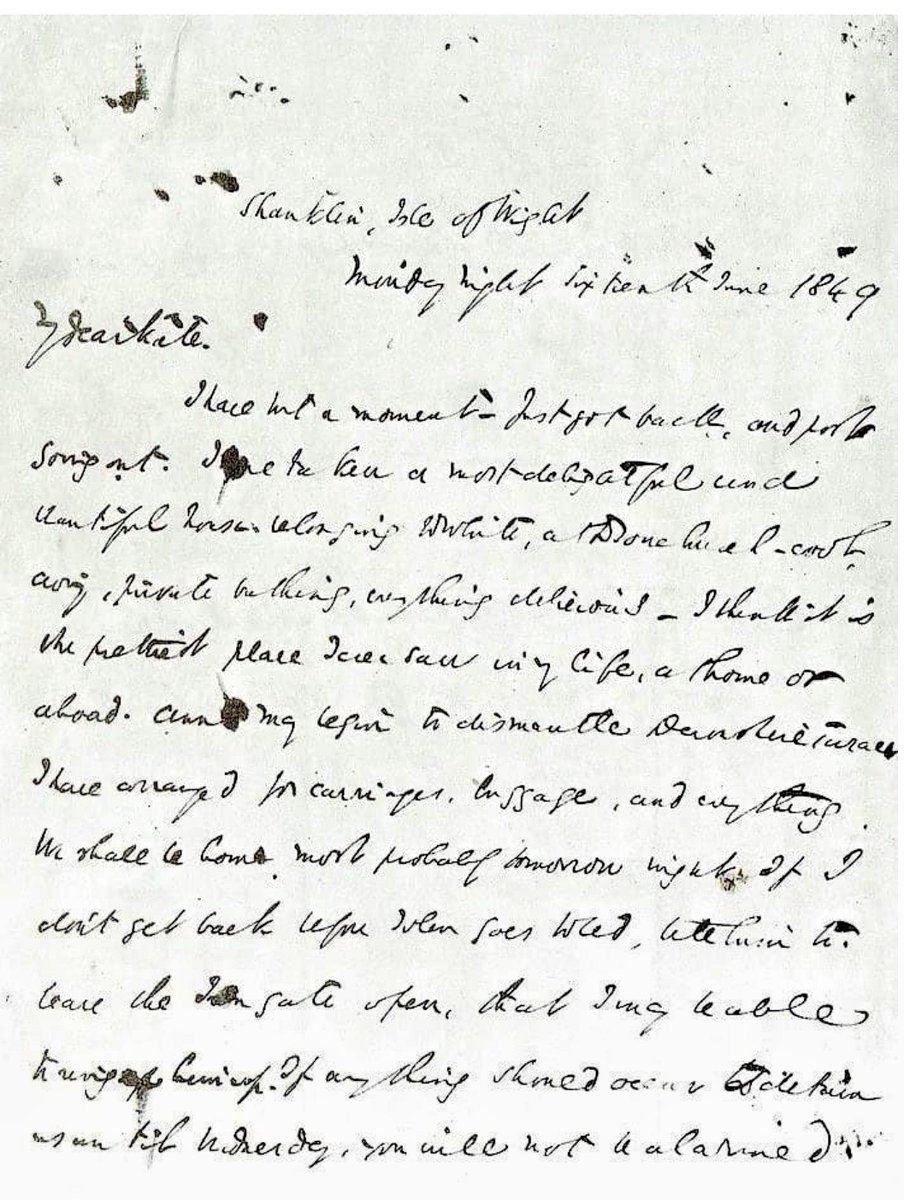 Shanklin, Isle of Wight
Monday Night Sixteenth June 1849
My dear Kate.
I have but a moment - Just got back, and post
going out. I have taken a most delightful and
beautiful house, belonging to White, at Bonchurch - cool,
airy, private bathing, everything delicious - I think it is
the prettiest place I ever saw in my life, at home or
abroad. Anne may begin to dismantle Devonshire Terrace
I have arranged for carriages, luggage, and everything.
We shall be home most probably tomorrow night. If I
don't get back before John goes to bed, tell him to
leave the Iron gate open, that I may be able
to ring him up. If anything should occur to detain
us until Wednesday, you will not be alarmed.